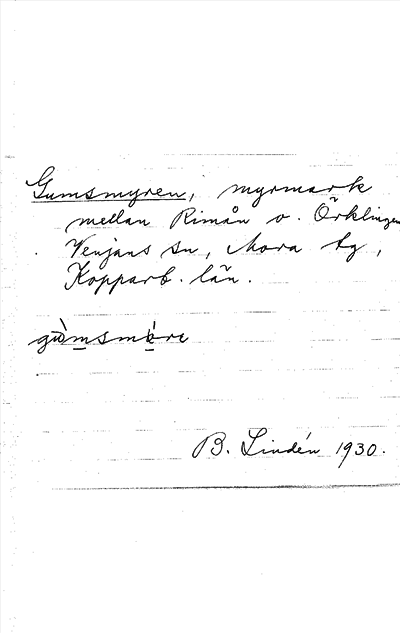 Gumsmyren, myrmark
mellan Rimån o. Örklingen
Venjans sn, Mora tg,
Kopparb. län.
B. Lindén 1930.